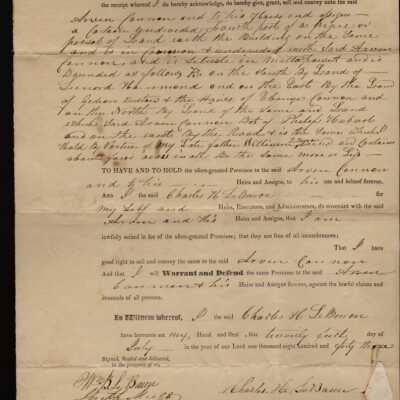 the receipt whereof I do hereby acknowledge, do hereby give, grant, sell and convey unto the said
Arven Cannon and to his Heirs and assigns
a Certain undivided fourth part of a
of Land with the Building on the Same
and to be in Common & undivided with said Arven
Cannon, and is Situate in Mattapoisett and is
Bounded as follows Viz on the South By Land of
Leonard Hammond and on the East By the Land
of Gideon and the Heirs of Ebenezer Cannon and
on the North By Land of the Same and Land
which Said Arven Cannon Bot of Philip
and on the By the Road & is the Same which I
hold By Virtue of My Late father William and Contains
about acres with Be the Same more or Less
TO HAVE AND TO HOLD the afore-granted Premises to the said Arven Cannon
and to his Heirs and Assigns, to his use and behoof forever.
And I the said Charles H LeBaron for
my Self and Heirs, Executors, and Administrators, do covenant with the said
Arven and his Heirs and Assigns, that I am
lawfully seized in fee of the afore-granted Premises; that they are free of all incumbrances;
That I have
good right to sell and convey the same to the said Arven Cannon
And that I will Warrant and Defend the same Premises to the said Arven
Cannon & his Heirs and Assigns forever, against the lawful claims and
demands of all persons.
In Witness whereof, I the said Charles H LeBaron
have hereunto set my Hand and Seal, this twenty day of
July in the year of our Lord one thousand eight hundred and forty three
Signed, Sealed and delivered,
in the presence of us,
Wm LeBaron
Charles H. LeBaron